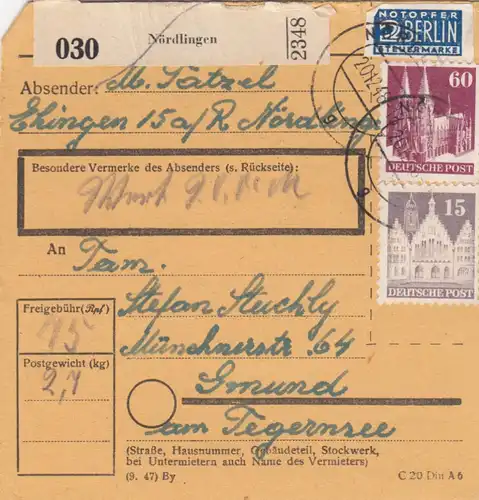 030
Nördlingen
2348
NOTOPFER
2 BERLIN
STEUERMARKE
Absender: M. Tatzel
Ehingen 15 a/R Nördling
60
DEUTSCHE POST
Besondere Vermerke des Absenders (s. Rückseite):
15
DEUTSCHE POST
An Fam.
Stefan Stuchly
Münchnerstr. 64
Gmund
am Tegernsee
Freigebühr (Rpf)
75
Postgewicht (kg)
2,7
(Straße, Hausnummer, Gebäudeteil, Stockwerk,
bei Untermietern auch Name des Vermieters)
(9. 47) By
C 20 Din A 6